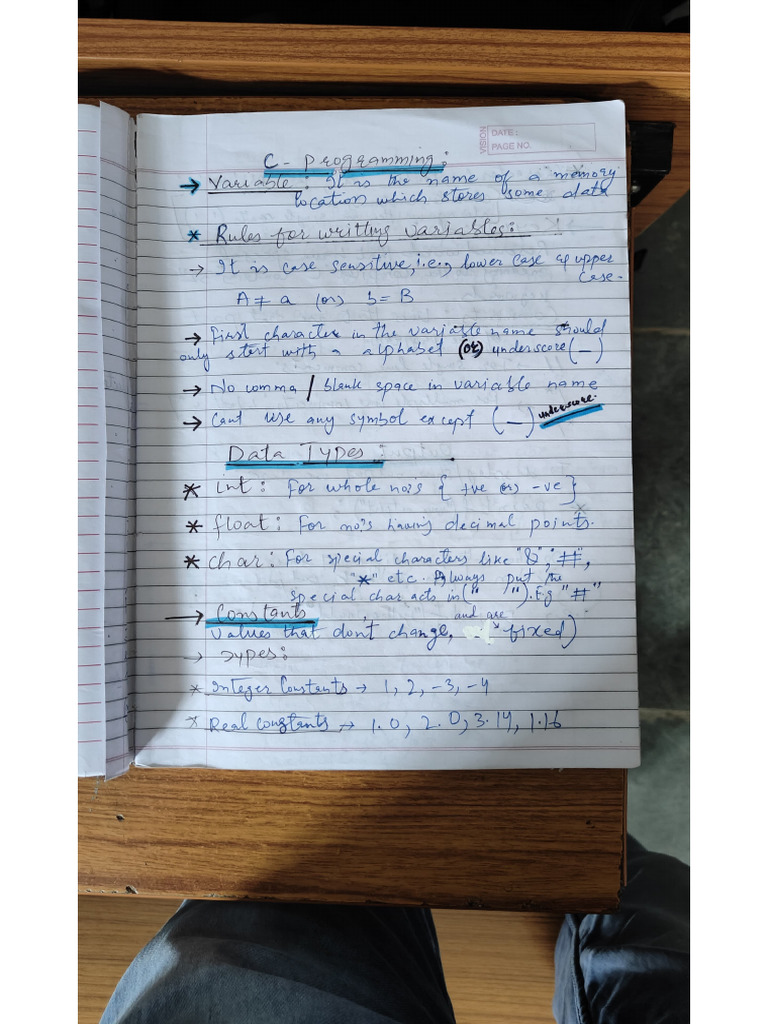 VISION
DATE:
PAGE NO.
C - Programming:
→ Variable: It is the name of a memory
location which stores some data
* Rules for writting variables:
→ It is case sensitive, i.e, lower case ≠ upper
case.
A ≠ a (or) b = B
→ First character in the variable name should
only start with a alphabet (or) underscore (_)
→ No comma / blank space in variable name
→ Cant use any symbol except (_) underscore.
Data Types:
* int: For whole no's { +ve (or) -ve }
* float: For no's having decimal points.
* char: For special characters like "&", "#",
"*" etc. Always put the
special char acts in (" "). Eg "#"
→ Constants
Values that don't change, and are fixed)
→ Types:
* Integer Constants → 1, 2, -3, -4
* Real constants → 1.0, 2.0, 3.14, 1.16